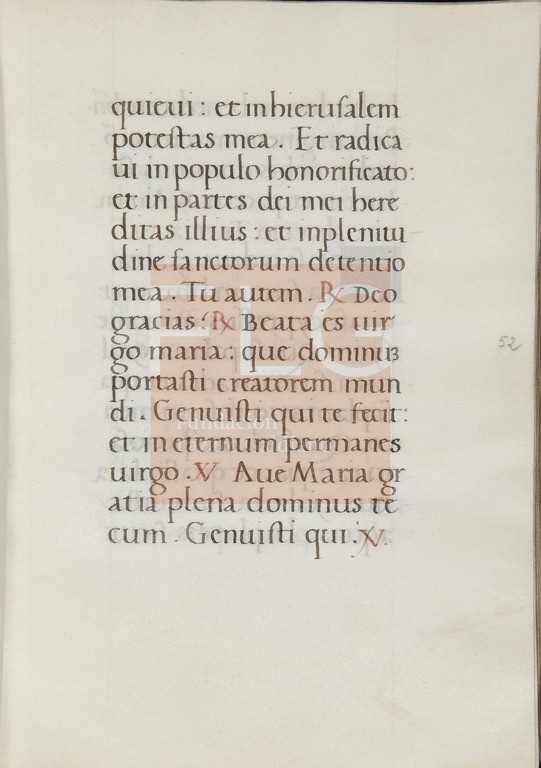 quieui : et inhieruſalem
poteſtas mea . Et radica
ui in populo honorificato :
et in partes dei mei here
ditas illius : et inplenitu
dine ſanctorum detentio
mea . Tu autem . ℟ Deo
gracias : ℟ Beata es uir
go maria : que dominuʒ
portaſti creatorem mun
di . Genuiſti qui te fecit :
et in eternum permanes
uirgo . ℣ Aue Maria gr
atia plena dominus te
cum . Genuiſti qui . ℣.
52
TLG
Fundación